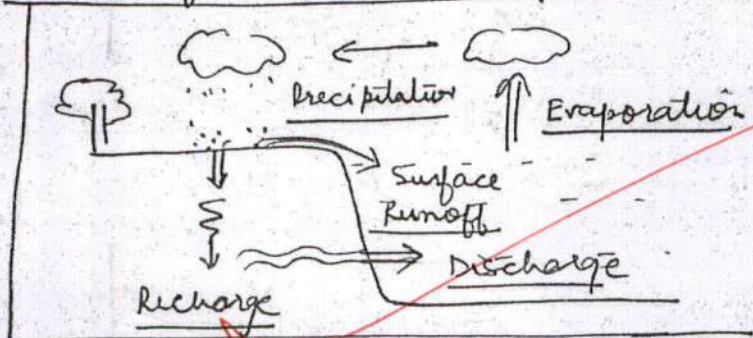 Precipitation
Evaporation
Surface
Runoff
Discharge
Recharge